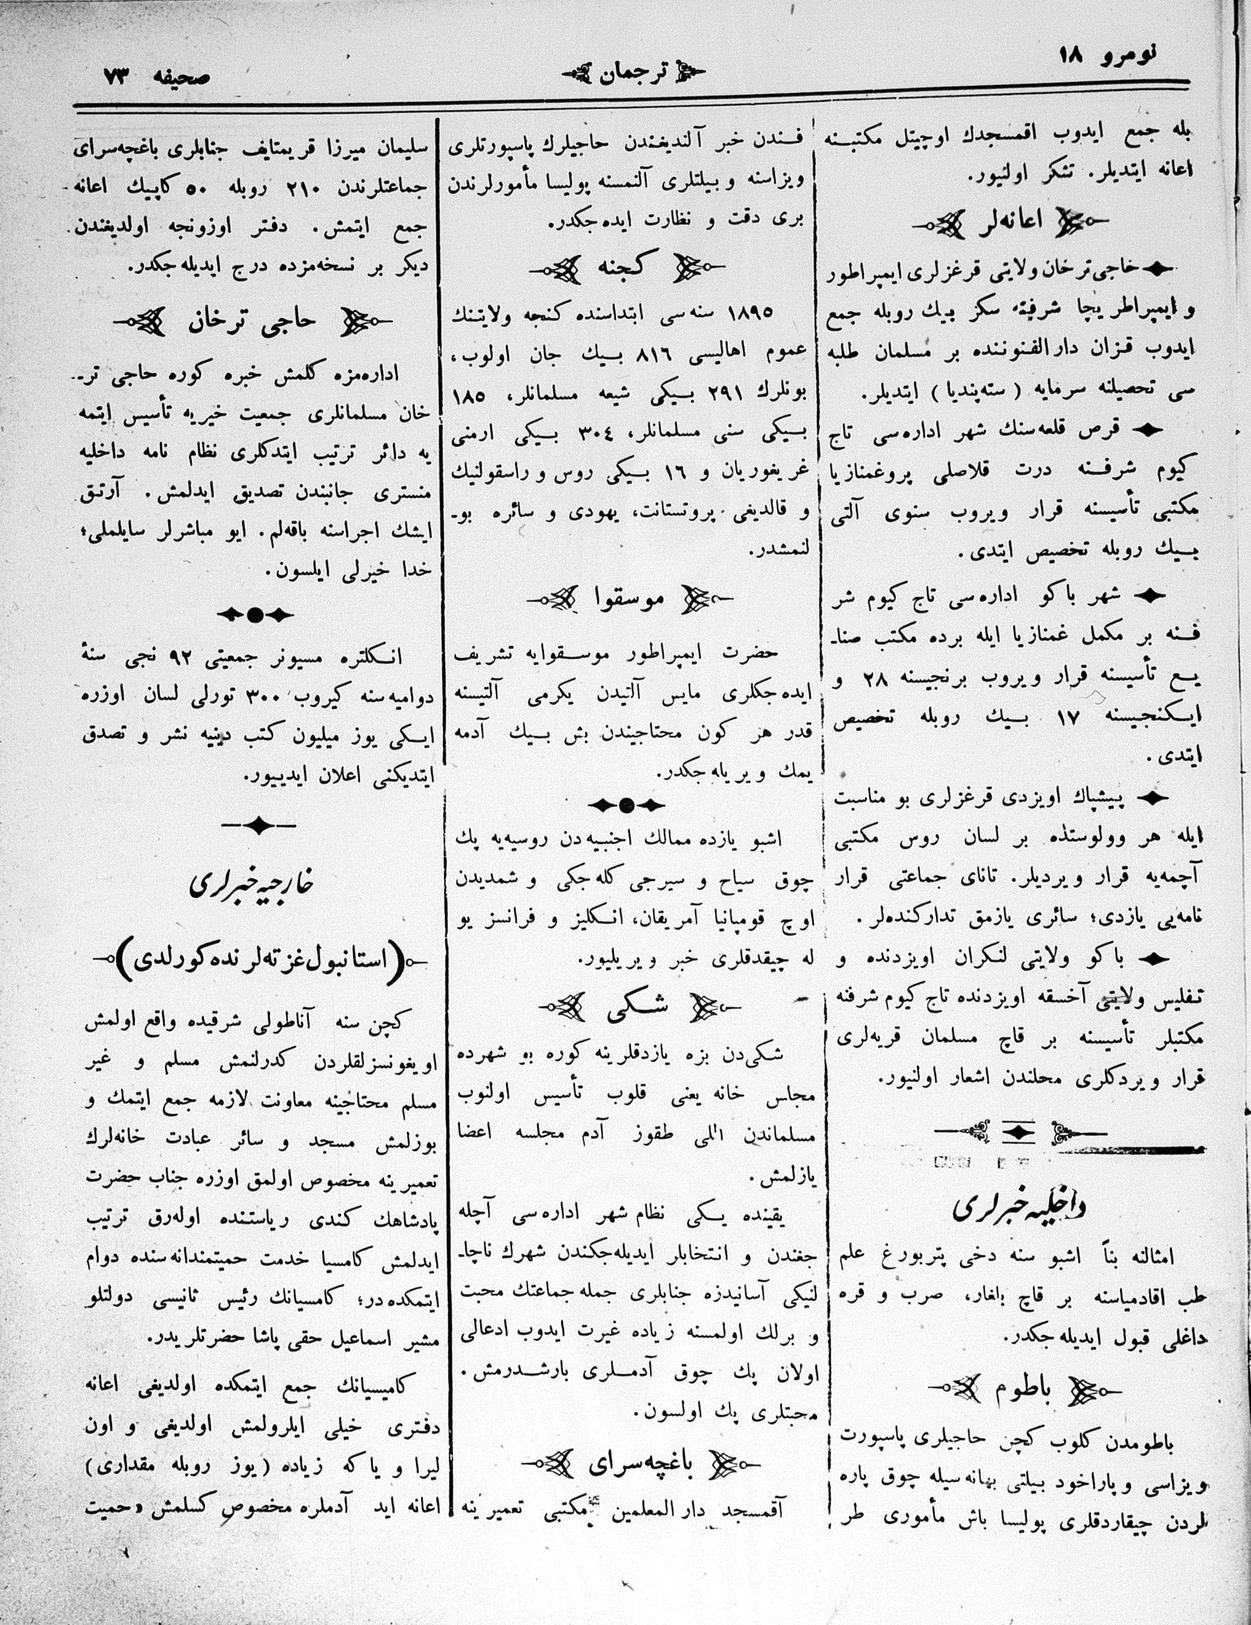 نومرو ١٨
ترجمان
صحيفه ٧٣
بله جمع ايدوب اقمسجدك اوچيتل مكتبنه
اعانه ايتديلر. تشكر اولنيور.
اعانه‌لر
خاجى‌ترخان ولايتى قرغزلرى ايمپراطور
و ايمپراطريچا شرفينه سكز بيك روبله جمع
ايدوب قزان دارالفنوننده بر مسلمان طلبه
سى تحصيلنه سرمايه (سته‌پنديا) ايتديلر.
قرص قلعه‌سنك شهر اداره‌سى تاج
كيوم شرفنه درت قلاصلى پروغمنازيا
مكتبى تأسيسنه قرار ويروب سنوى آلتى
بيك روبله تخصيص ايتدى.
شهر باكو اداره‌سى تاج كيوم شر
فنه بر مكمل غمنازيا ايله برده مكتب صنا-
يع تأسيسنه قرار ويروب برنجيسنه ٢٨ و
ايكنجيسنه ١٧ بيك روبله تخصيص
ايتدى.
پيشپاك اويزدى قرغزلرى بو مناسبت
ايله هر وولوستده بر لسان روس مكتبى
آچمه‌يه قرار ويرديلر. تاناى جماعتى قرار
نامه‌يى يازدى؛ سائرى يازمق تداركنده‌لر.
باكو ولايتى لنكران اويزدنده و
تفليس ولايتى آخسقه اويزدنده تاج كيوم شرفنه
مكتبلر تأسيسنه بر قاچ مسلمان قريه‌لرى
قرار ويردكلرى محلندن اشعار اولنيور.
داخليه خبرلرى
امثالنه بناً اشبو سنه دخى پتربورغ علم
طب اقادمياسنه بر قاچ بلغار، صرب و قره
داغلى قبول ايديله‌جكدر.
باطوم
باطومدن كلوب كچن حاجيلرى پاسپورت
ويزاسى و پاراخود بيلتى بهانه‌سيله چوق پاره
لردن چيقاردقلرى پوليسا باش مأمورى طر
فندن خبر آلنديغندن حاجيلرك پاسپورتلرى
ويزاسنه و بيلتلرى آلنمسنه پوليسا مأمورلرندن
برى دقت و نظارت ايده‌جكدر.
كجنه
١٨٩٥ سنه‌سى ابتداسنده كنجه ولايتنك
عموم اهاليسى ٨١٦ بيك جان اولوب،
بونلرك ٢٩١ بيكى شيعه مسلمانلر، ١٨٥
بيكى سنى مسلمانلر، ٣٠٤ بيكى ارمنى
غريغوريان و ١٦ بيكى روس و راسقولنيك
و قالديغى پروتستانت، يهودى و سائره بو-
لنمشدر.
موسقوا
حضرت ايمپراطور موسقوايه تشريف
ايده‌جكلرى مايس آلتيدن يكرمى آلتيسنه
قدر هر كون محتاجيندن بش بيك آدمه
يمك ويريله‌جكدر.
اشبو يازده ممالك اجنبيه‌دن روسيه‌يه پك
چوق سياح و سيرجى كله‌جكى و شمديدن
اوچ قومپانيا آمريقان، انكليز و فرانسز يو
له چيقدقلرى خبر ويريليور.
شكى
شكى‌دن بزه يازدقلرينه كوره بو شهرده
مجلس خانه يعنى قلوب تأسيس اولنوب
مسلماندن اللى طقوز آدم مجلسه اعضا
يازلمش.
يقينده يكى نظام شهر اداره‌سى آچله
جغندن و انتخابلر ايديله‌جكندن شهرك ناچا-
لنيكى آسانيدزه جنابلرى جمله جماعتك محبت
و برلك اولمسنه زياده غيرت ايدوب ادعالى
اولان پك چوق آدملرى بارشدرمش.
محبتلرى پك اولسون.
باغچه‌سراى
آقمسجد دار المعلمين مكتبى تعميرينه
سليمان ميرزا قريمتايف جنابلرى باغچه‌سراى
جماعتلرندن ٢١٠ روبله ٥٠ كاپيك اعانه
جمع ايتمش. دفتر اوزونجه اولديغندن
ديكر بر نسخه‌مزده درج ايديله‌جكدر.
حاجى ترخان
اداره‌مزه كلمش خبره كوره حاجى تر-
خان مسلمانلرى جمعيت خيريه تأسيس ايتمه
يه دائر ترتيب ايتدكلرى نظام نامه داخليه
منسترى جانبندن تصديق ايدلمش. آرتق
ايشك اجراسنه باقه‌لم. ايو مباشرلر سايلملى؛
خدا خيرلى ايلسون.
انكلتره مسيونر جمعيتى ٩٢ نجى سنهٔ
دواميه‌سنه كيروب ٣٠٠ تورلى لسان اوزره
ايكى يوز ميليون كتب دينيه نشر و تصدق
ايتديكنى اعلان ايدييور.
خارجيه خبرلرى
(استانبول غزته‌لرنده كورلدى)
كچن سنه آناطولى شرقيده واقع اولمش
اويغونسزلقلردن كدرلنمش مسلم و غير
مسلم محتاجينه معاونت لازمه جمع ايتمك و
بوزلمش مسجد و سائر عبادت خانه‌لرك
تعميرينه مخصوص اولمق اوزره جناب حضرت
پادشاهك كندى رياستنده اوله‌رق ترتيب
ايدلمش كامسيا خدمت حميتمندانه‌سنده دوام
ايتمكده‌در؛ كامسيانك رئيس ثانيسى دولتلو
مشير اسماعيل حقى پاشا حضرتلريدر.
كاميسيانك جمع ايتمكده اولديغى اعانه
دفترى خيلى ايلرولمش اولديغى و اون
ليرا و ياكه زياده (يوز روبله مقدارى)
اعانه ايد آدملره مخصوص كسلمش «حميت